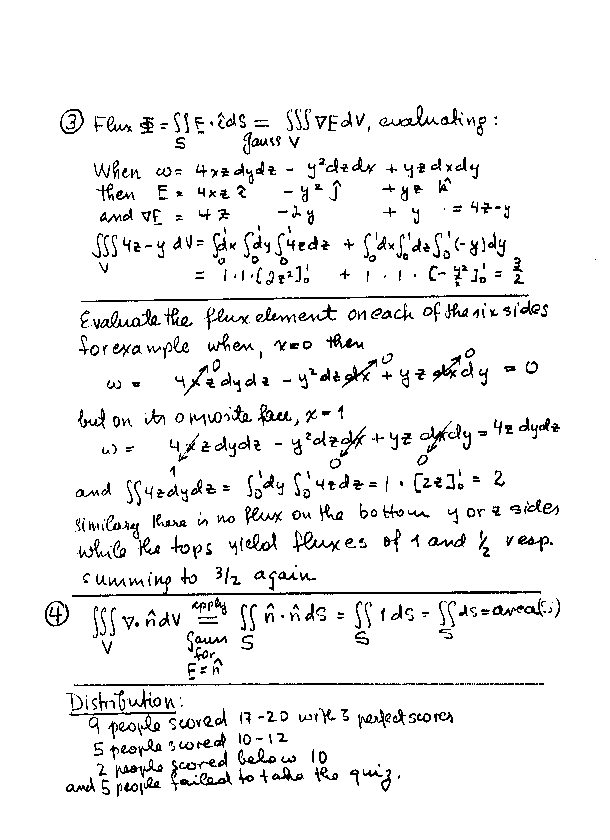 ③ Flux Φ = ∬ E · î dS = ∭ ∇E dV, evaluating:
S Gauss V
When ω = 4xz dydz − y² dzdx + yz dxdy
then E = 4xz î − y² ĵ + yz k̂
and ∇E = 4z − 2y + y = 4z−y
∭ 4z−y dV = ∫₀¹dx ∫₀¹dy ∫₀¹4zdz + ∫₀¹dx∫₀¹dz∫₀¹(−y)dy
V = 1·1·[2z²]₀¹ + 1·1·[−y²/2]₀¹ = 3/2
Evaluate the flux element on each of the six sides
for example when, x=0 then
0 0 0
ω = 4xzdydz − y²dzdx + yz dxdy = 0
but on its opposite face, x = 1
ω = 4xzdydz − y²dzdx + yz dxdy = 4z dydz
1 0 0
and ∬4zdydz = ∫₀¹dy ∫₀¹4zdz = 1 · [2z]₀¹ = 2
Similary there is no flux on the bottom y or z sides
while the tops yield fluxes of 1 and ½ resp.
summing to 3/2 again
④ ∭ ∇·n̂ dV = ∬ n̂·n̂ dS = ∬ 1 dS = ∬ dS = area(S)
V apply Gauss for E = n̂ S S S
Distribution:
9 people scored 17-20 with 3 perfect scores
5 people scored 10-12
2 people scored below 10
and 5 people failed to take the quiz.